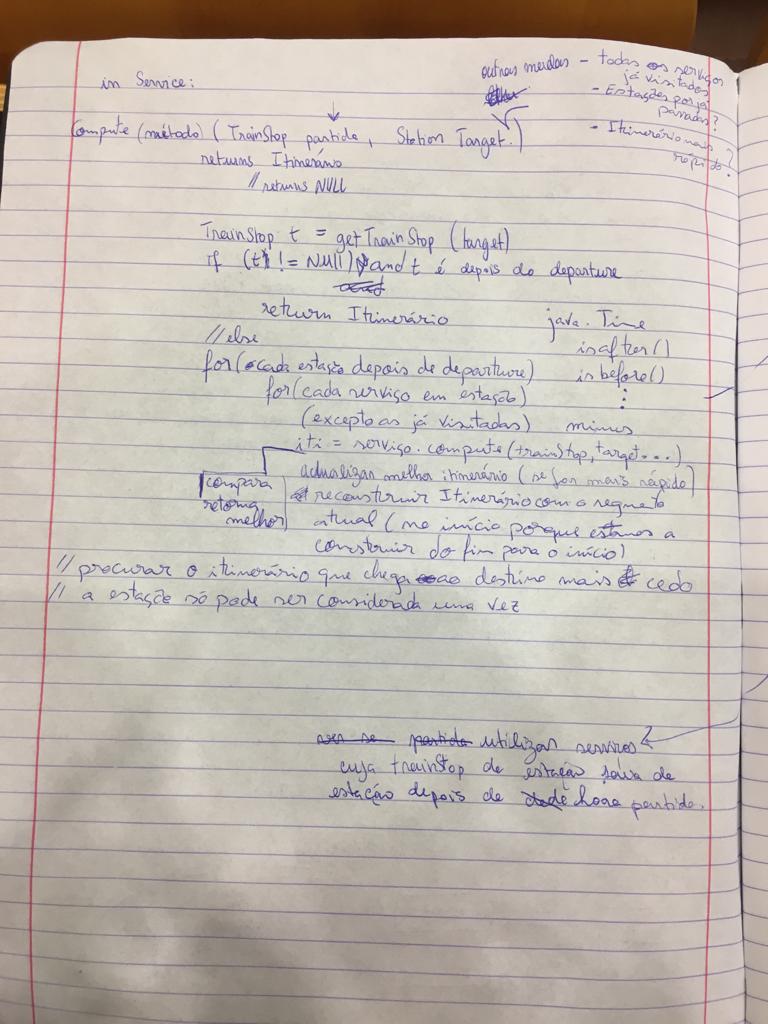 in Service:
outras merdas - todas os serviços
já visitados
- Estações por já
passadas?
- Itinerário mais
rápido?
Compute (método) (TrainStop partida, Station Target.)
returns Itinerário
// returns NULL
TrainStop t = getTrainStop (target)
if (t != Null) and t é depois do departure
return Itinerário
java.Time
// else
isafter()
for(cada estação depois de departure)
isbefore()
for(cada serviço em estação)
(excepto as já visitadas)
minus
iti = serviço.compute(trainStop, target...)
actualizar melhor itinerário (se for mais rápido)
compara
retorna
melhor
reconstruir Itinerário com o segmento
atual (no início porque estamos a
construir do fim para o início)
// procurar o itinerário que chega ao destino mais cedo
// a estação só pode ser considerada uma vez
utilizar serviços
cuja trainStop de estação saia de
estação depois de hora partida.